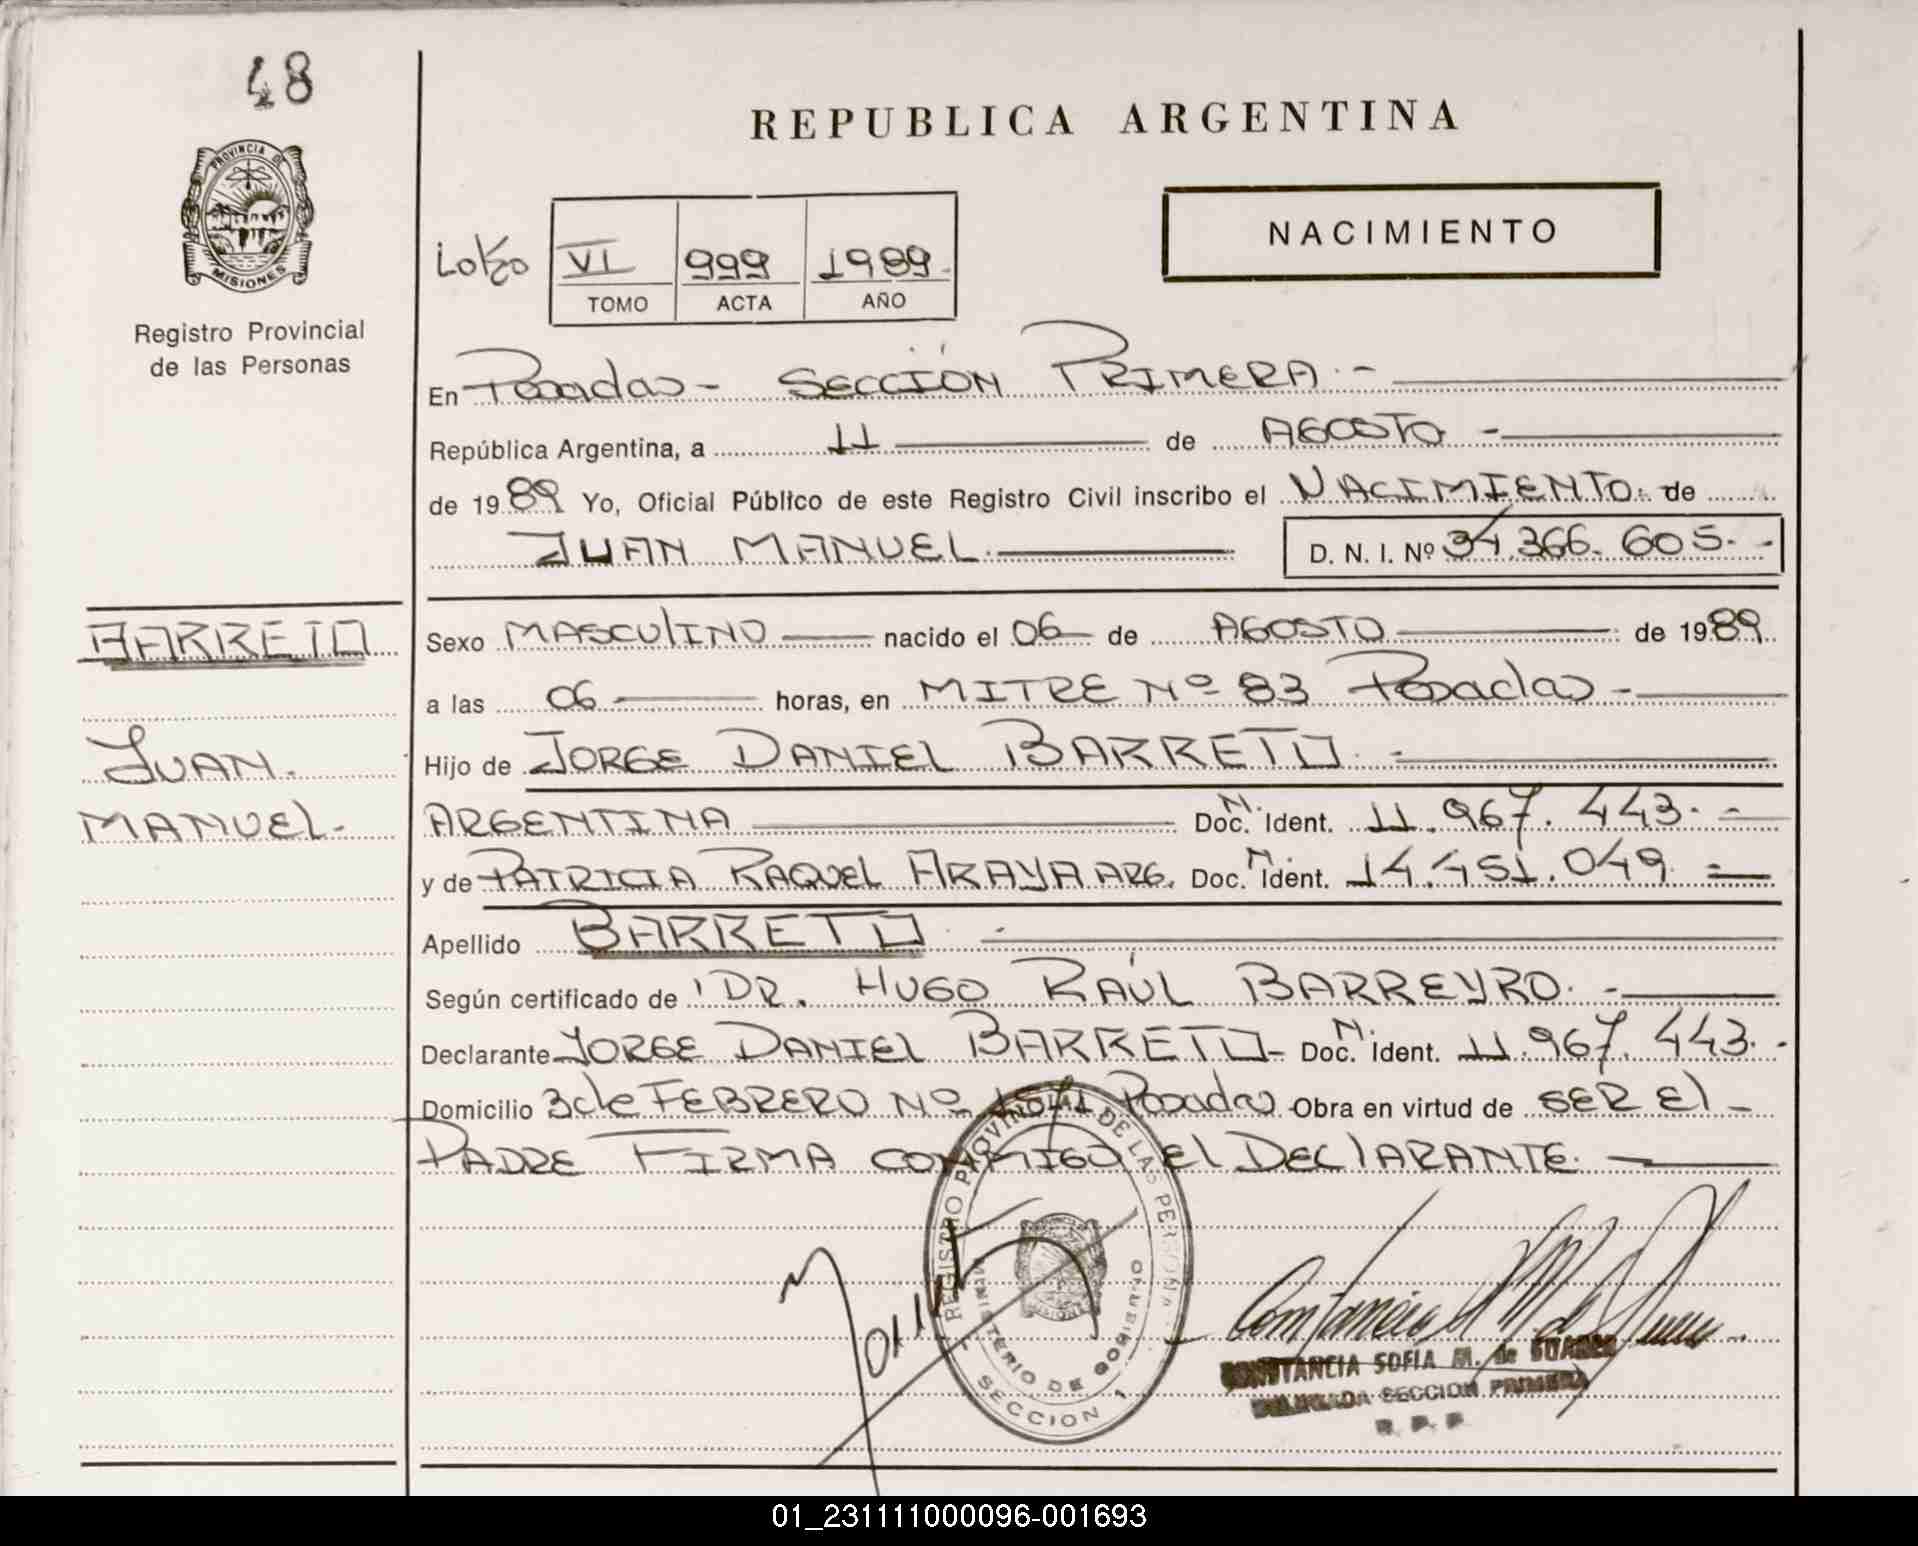 48
PROVINCIA DE
MISIONES
Registro Provincial
de las Personas
REPUBLICA ARGENTINA
NACIMIENTO
VI 999 1989
TOMO ACTA AÑO
En Posadas - SECCIÓN PRIMERA.-
República Argentina, a 11 de AGOSTO -
de 1989 Yo, Oficial Público de este Registro Civil inscribo el NACIMIENTO. de
JUAN MANUEL. D. N. I. Nº 34.366.605.-
BARRETO
JUAN
MANUEL-
Sexo MASCULINO nacido el 06 de AGOSTO de 1989
a las 06 horas, en MITRE Nº 83 Posadas -
Hijo de JORGE DANIEL BARRETO.-
ARGENTINA Doc. N. Ident. 11.967.443.-
y de PATRICIA RAQUEL ARAYA ARG. Doc. N. Ident. 14.451.049
Apellido BARRETO.-
Según certificado de DR. HUGO RAÚL BARREYRO.-
Declarante JORGE DANIEL BARRETO- Doc. N. Ident. 11.967.443.-
Domicilio 3 de FEBRERO Nº Posadas Obra en virtud de SER El -
PADRE FIRMA CONMIGO El DEClARANTE.
REGISTRO PROVINCIAL DE LAS PERSONAS
MINISTERIO DE GOBIERNO
MISIONES
SECCION 1
CONSTANCIA SOFIA M. de SUAREZ
DELEGADA SECCION PRIMERA
R. P. P.
01_231111000096-001693